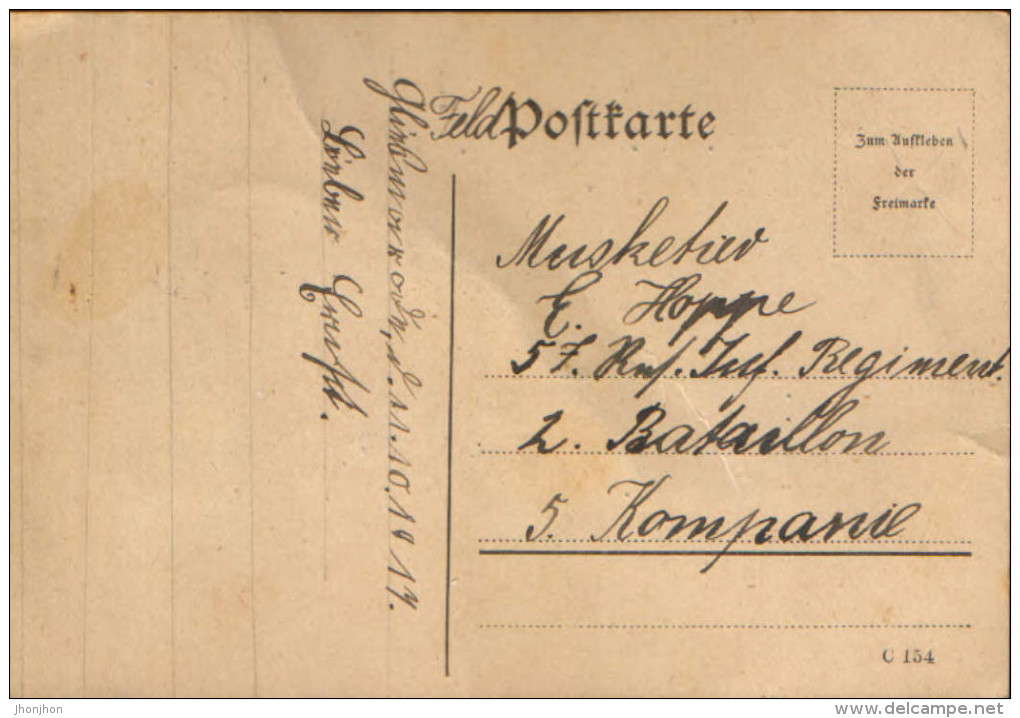 FeldPostkarte
Zum Aufkleben
der
Freimarke
Musketier
E. Hoppe
57. Inf. Regiment.
2. Bataillon
5. Kompanie
C 154
d. 11.10.1917.
Lieber Ernst.
Jhonjhon
www.delcampe.net